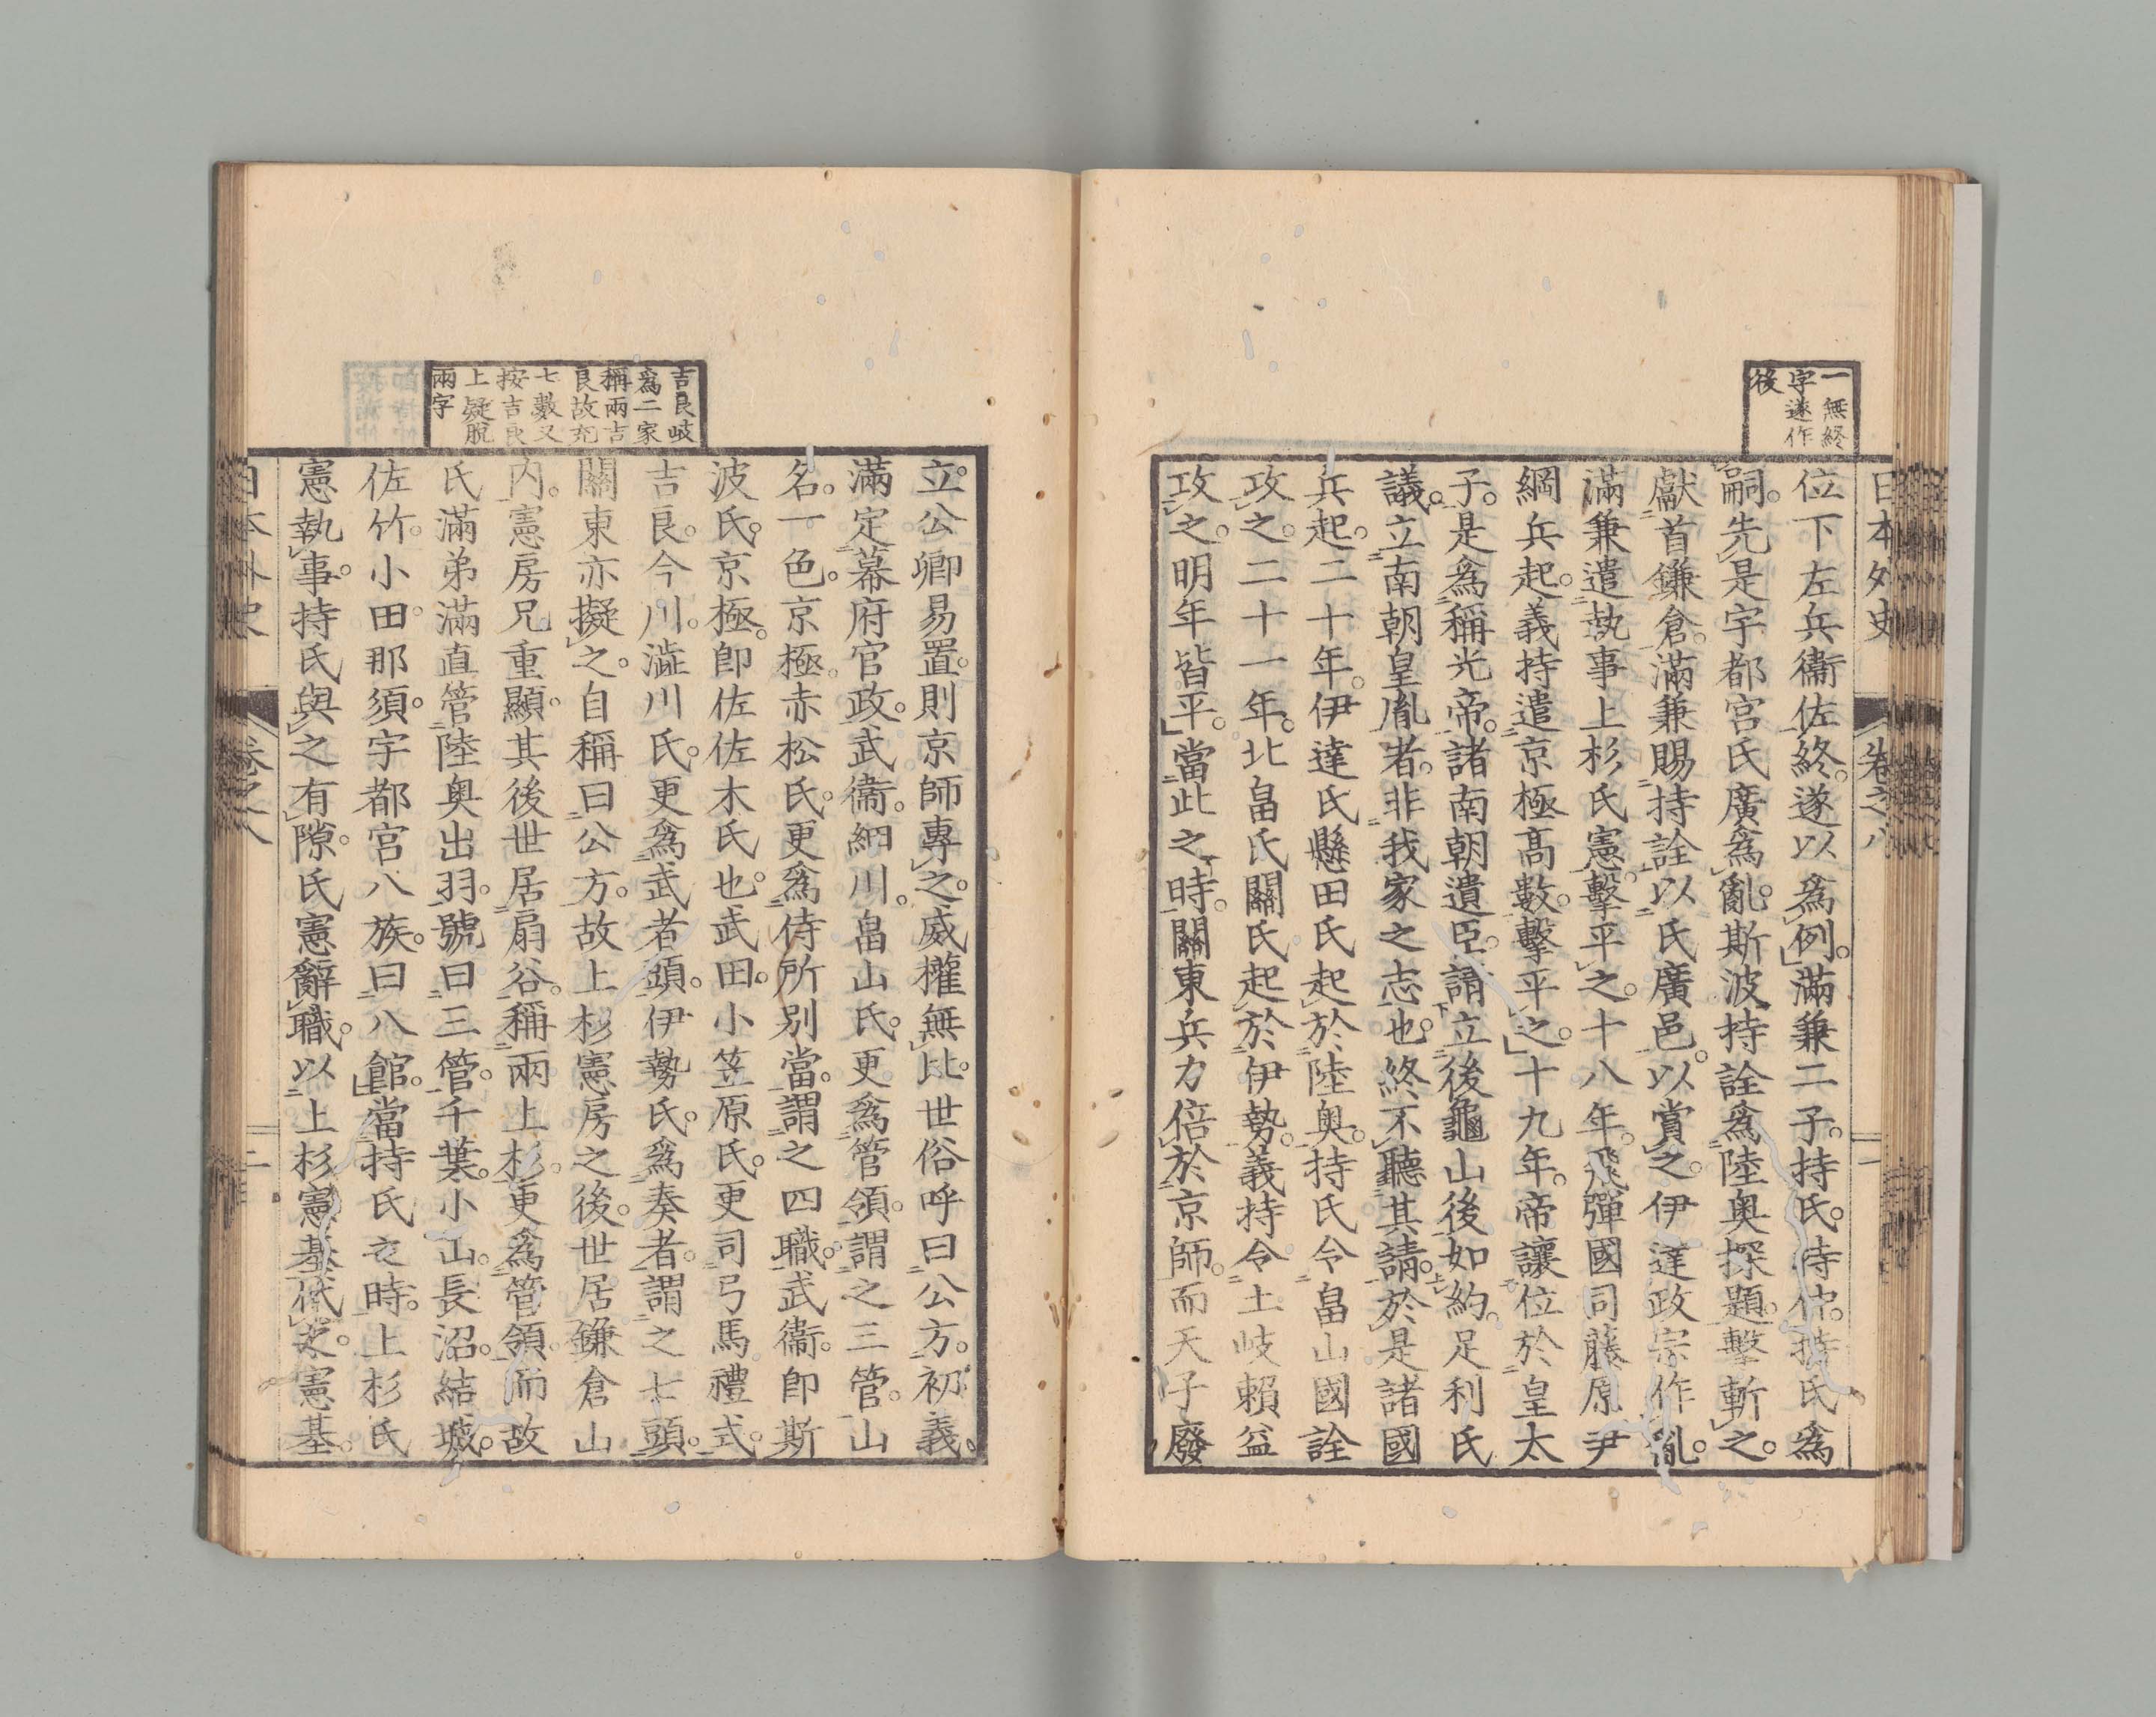 日本外史
卷之八
一無終
字遂作
後
位下左兵衞佐終。遂以爲例。滿兼二子。持氏。持仲。持氏爲
嗣。先是宇都宮氏廣爲亂。斯波持詮爲陸奧探題。擊斬之。
獻首鎌倉。滿兼賜持詮以氏廣邑。以賞之。伊達政宗作亂。
滿兼遣執事上杉氏憲。擊平之。十八年。飛彈國司藤原尹
綱兵起。義持遣京極高數。擊平之。十九年。帝讓位於皇太
子。是爲稱光帝。諸南朝遺臣。請立後龜山後如約。足利氏
議。立南朝皇胤者。非我家之志也。終不聽其請。於是諸國
兵起。二十年。伊達氏懸田氏起於陸奧。持氏令畠山國詮
攻之。二十一年。北畠氏關氏起於伊勢。義持令土岐賴益
攻之。明年皆平。當此之時。關東兵力倍於京師。而天子廢
吉良岐
爲二家
稱兩吉
良故充
七數又
按吉良
上疑脫
兩字
立。公卿易置。則京師專之。威權無比。世俗呼曰公方。初義
滿定幕府官政。武衞。細川。畠山氏。更爲管領。謂之三管。山
名。一色。京極。赤松氏。更爲侍所別當。謂之四職。武衞。卽斯
波氏。京極。卽佐佐木氏也。武田。小笠原氏。更司弓馬禮式。
吉良。今川。澁川氏。更爲武者頭。伊勢氏。爲奏者。謂之七頭。
關東亦擬之。自稱曰公方。故上杉憲房之後。世居鎌倉山
内。憲房兄重顯。其後世居扇谷。稱兩上杉。更爲管領。而故
氏滿弟滿直管陸奧出羽。號曰三管。千葉。小山。長沼。結城。
佐竹。小田。那須。宇都宮八族。曰八館。當持氏之時。上杉氏
憲執事。持氏與之有隙。氏憲辭職。以上杉憲基代之。憲基。
日本外史
卷之八
二